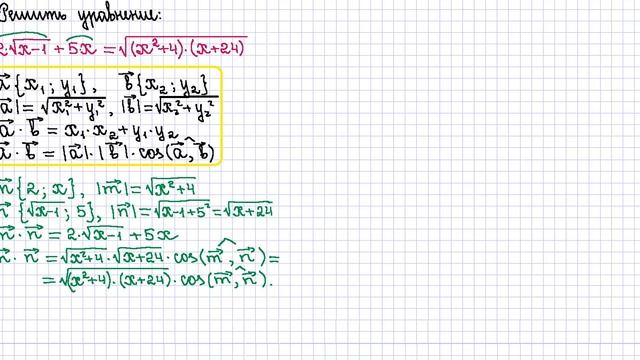 Решить уравнение:
2·√x-1 + 5x = √(x²+4)·(x+24)
a⃗ {x₁; y₁}, b⃗ {x₂; y₂}
|a⃗| = √x₁²+y₁², |b⃗| = √x₂²+y₂²
a⃗ · b⃗ = x₁·x₂ + y₁·y₂
a⃗ · b⃗ = |a⃗|·|b⃗|·cos(a⃗, b⃗)
m⃗ {2; x}, |m⃗| = √x²+4
n⃗ {√x-1; 5}, |n⃗| = √x-1+5² = √x+24
m⃗ · n⃗ = 2·√x-1 + 5x
m⃗ · n⃗ = √x²+4 · √x+24 · cos(m⃗, n⃗) =
= √(x²+4)·(x+24) · cos(m⃗, n⃗).